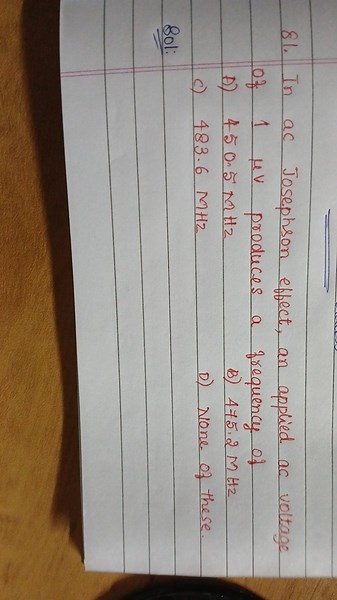 81. In ac Josephson effect, an applied ac voltage
of 1 μV produces a frequency of
A) 450.5 MHz B) 475.2 MHz
C) 483.6 MHz D) None of these.
Sol: